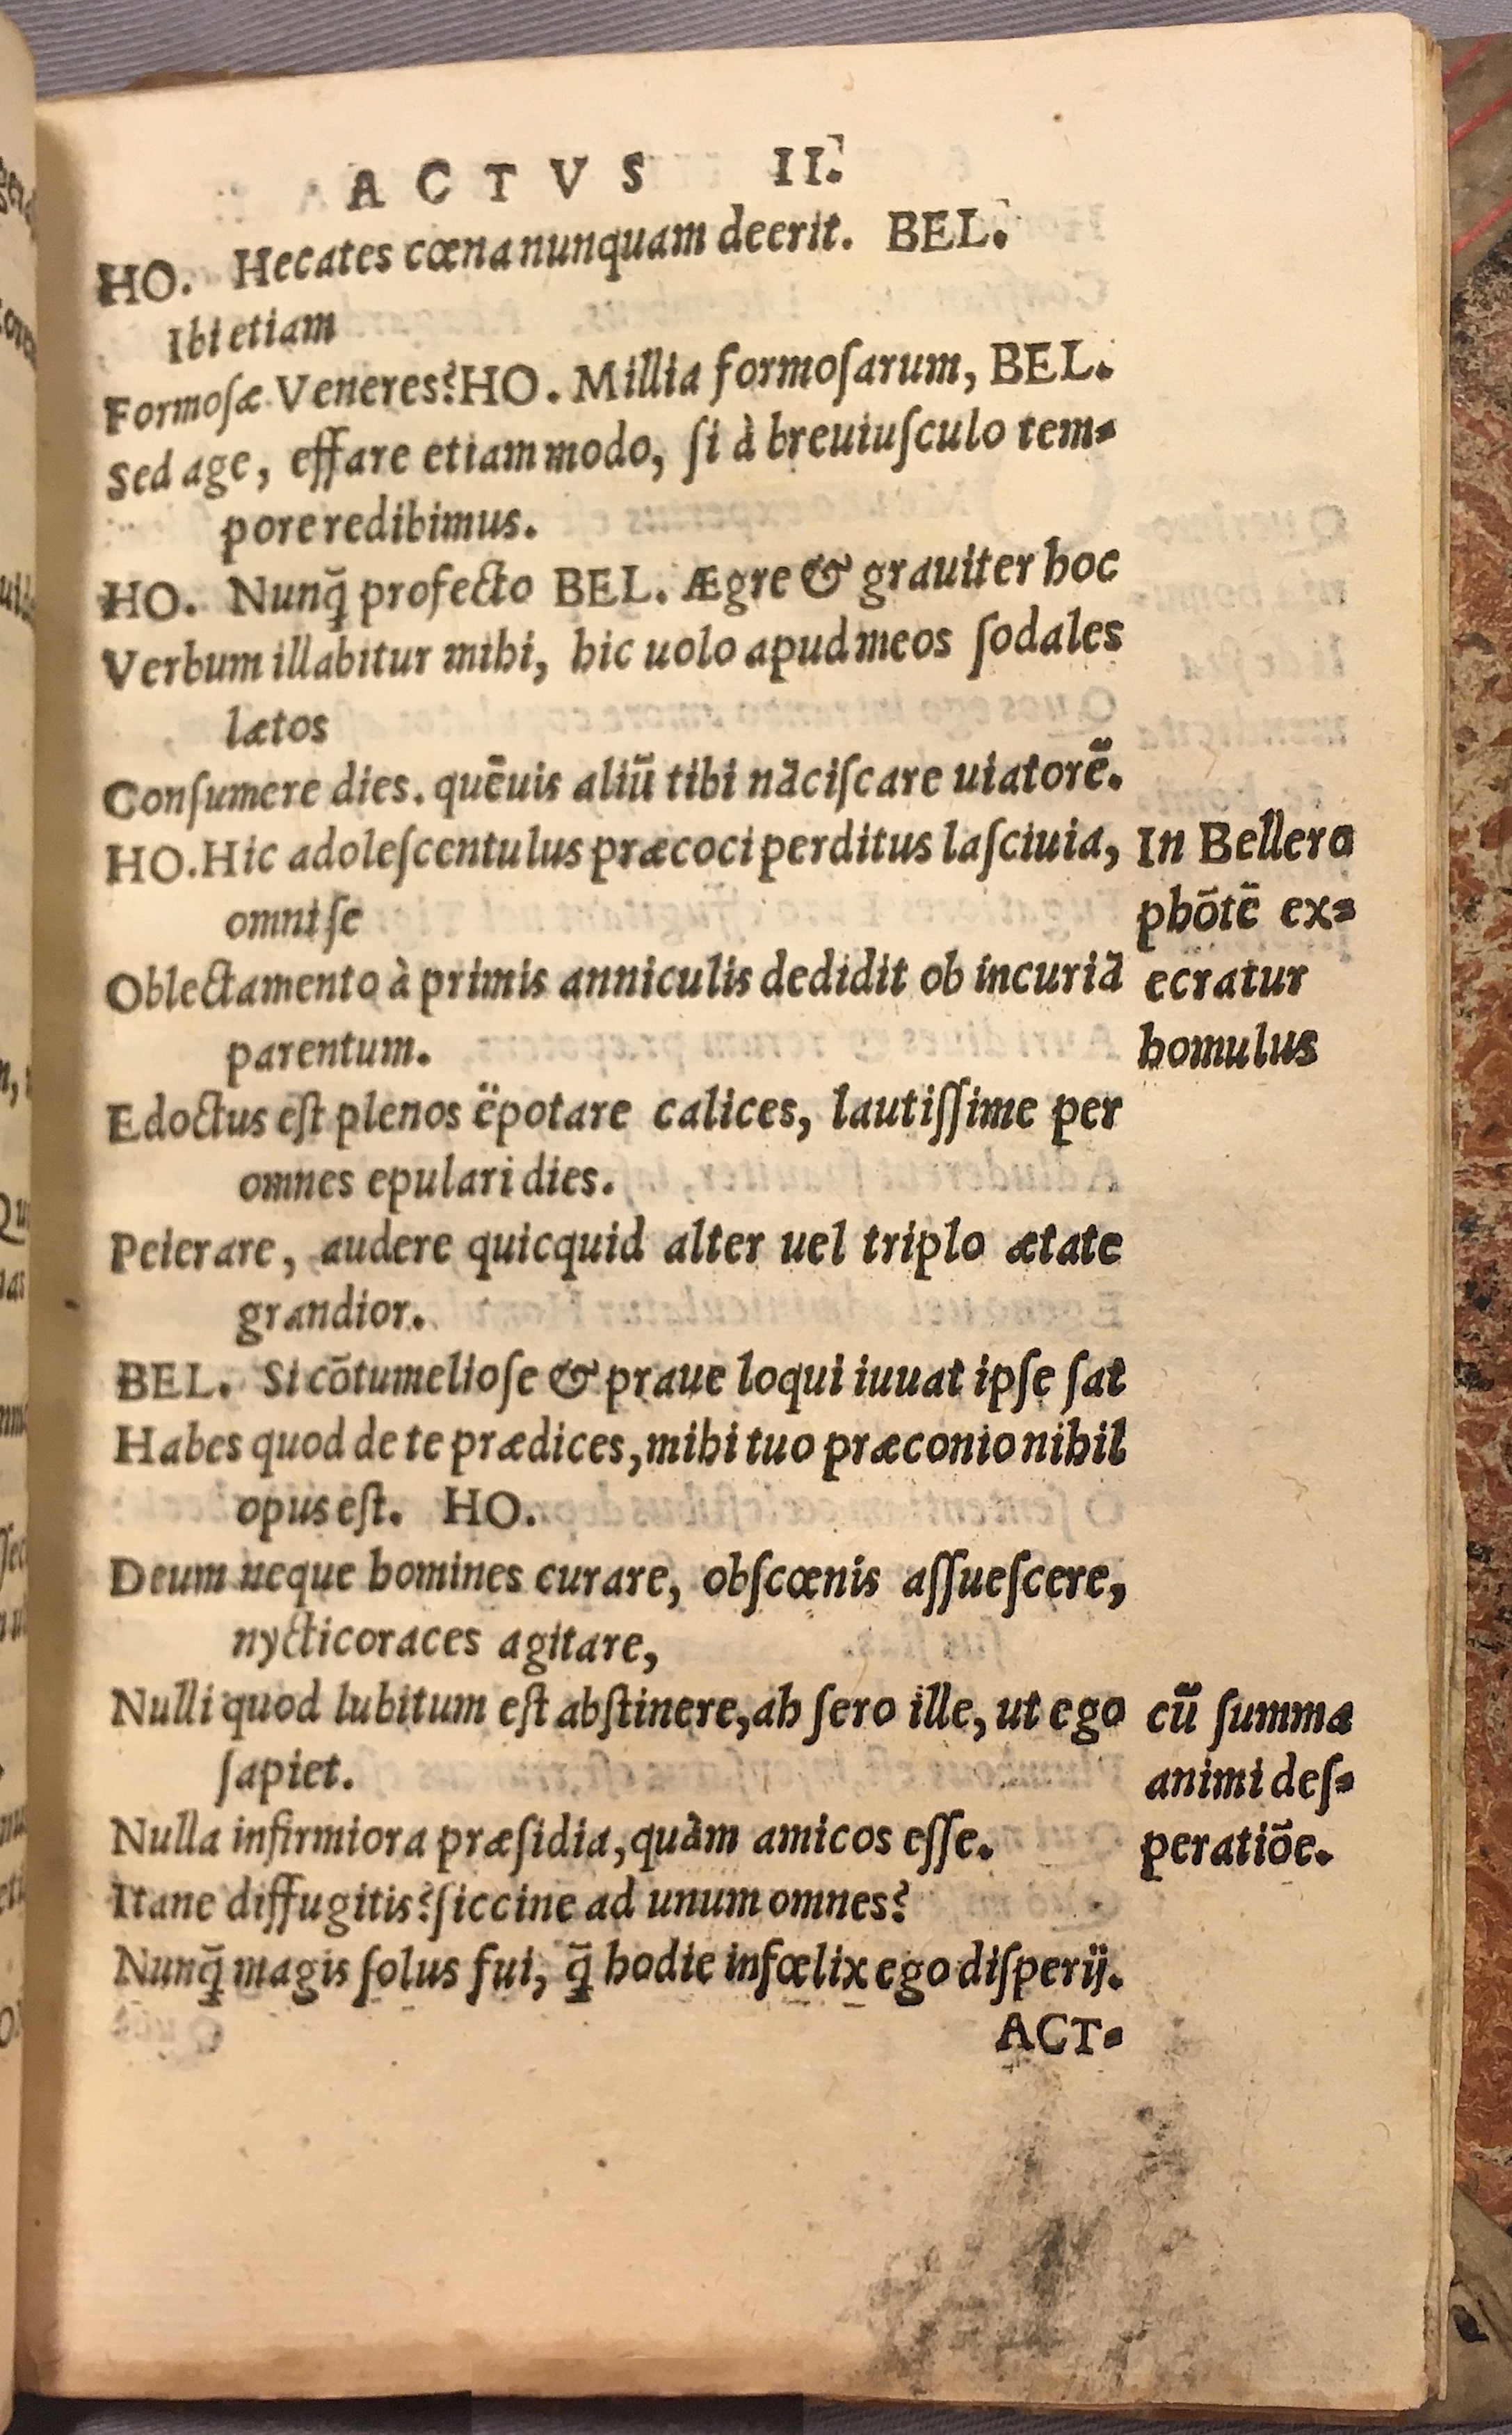 ACTVS II.
HO. Hecates cœna nunquam deerit. BEL.
Ibi etiam
Formoſæ Veneres? HO. Millia formoſarum, BEL.
Sed age, effare etiam modo, ſi à breuiuſculo tem-
pore redibimus.
HO. Nunq̃ profecto BEL. Ægre & grauiter hoc
Verbum illabitur mihi, hic uolo apud meos ſodales
lætos
Conſumere dies. quẽuis aliũ tibi nãciſcare uiatorẽ.
HO. Hic adoleſcentulus præcoci perditus laſciuia,
omni ſe
Oblectamento à primis anniculis dedidit ob incuriã
parentum.
Edoctus eſt plenos ëpotare calices, lautiſſime per
omnes epulari dies.
Peierare, audere quicquid alter uel triplo ætate
grandior.
BEL. Si cõtumelioſe & praue loqui iuuat ipſe ſat
Habes quod de te prædices, mihi tuo præconio nihil
opus eſt. HO.
Deum neque homines curare, obſcœnis aſſueſcere,
nycticoraces agitare,
Nulli quod lubitum eſt abſtinere, ah ſero ille, ut ego
ſapiet.
Nulla infirmiora præſidia, quàm amicos eſſe.
Itane diffugitis? ſiccine ad unum omnes?
Nunq̃ magis ſolus fui, q̃ hodie infœlix ego diſperij.
ACT-
In Bellero
phõtẽ ex-
ecratur
homulus
cũ ſumma
animi deſ-
peratiõe.